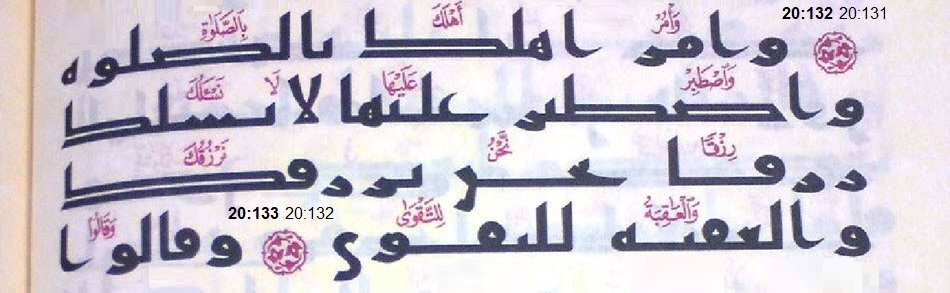 20:132 20:131
وَأْمُرْ أَهْلَكَ بِٱلصَّلَوٰةِ
وامر اهلك بالصلوه
وَٱصْطَبِرْ عَلَيْهَا لَا نَسْـَٔلُكَ
واصطبر عليها لا نسلك
رِزْقًا نَّحْنُ نَرْزُقُكَ
رزقا نحن نرزقك
20:133 20:132
وَٱلْعَـٰقِبَةُ لِلتَّقْوَىٰ وَقَالُوا
والعقبه للتقوى وقالوا